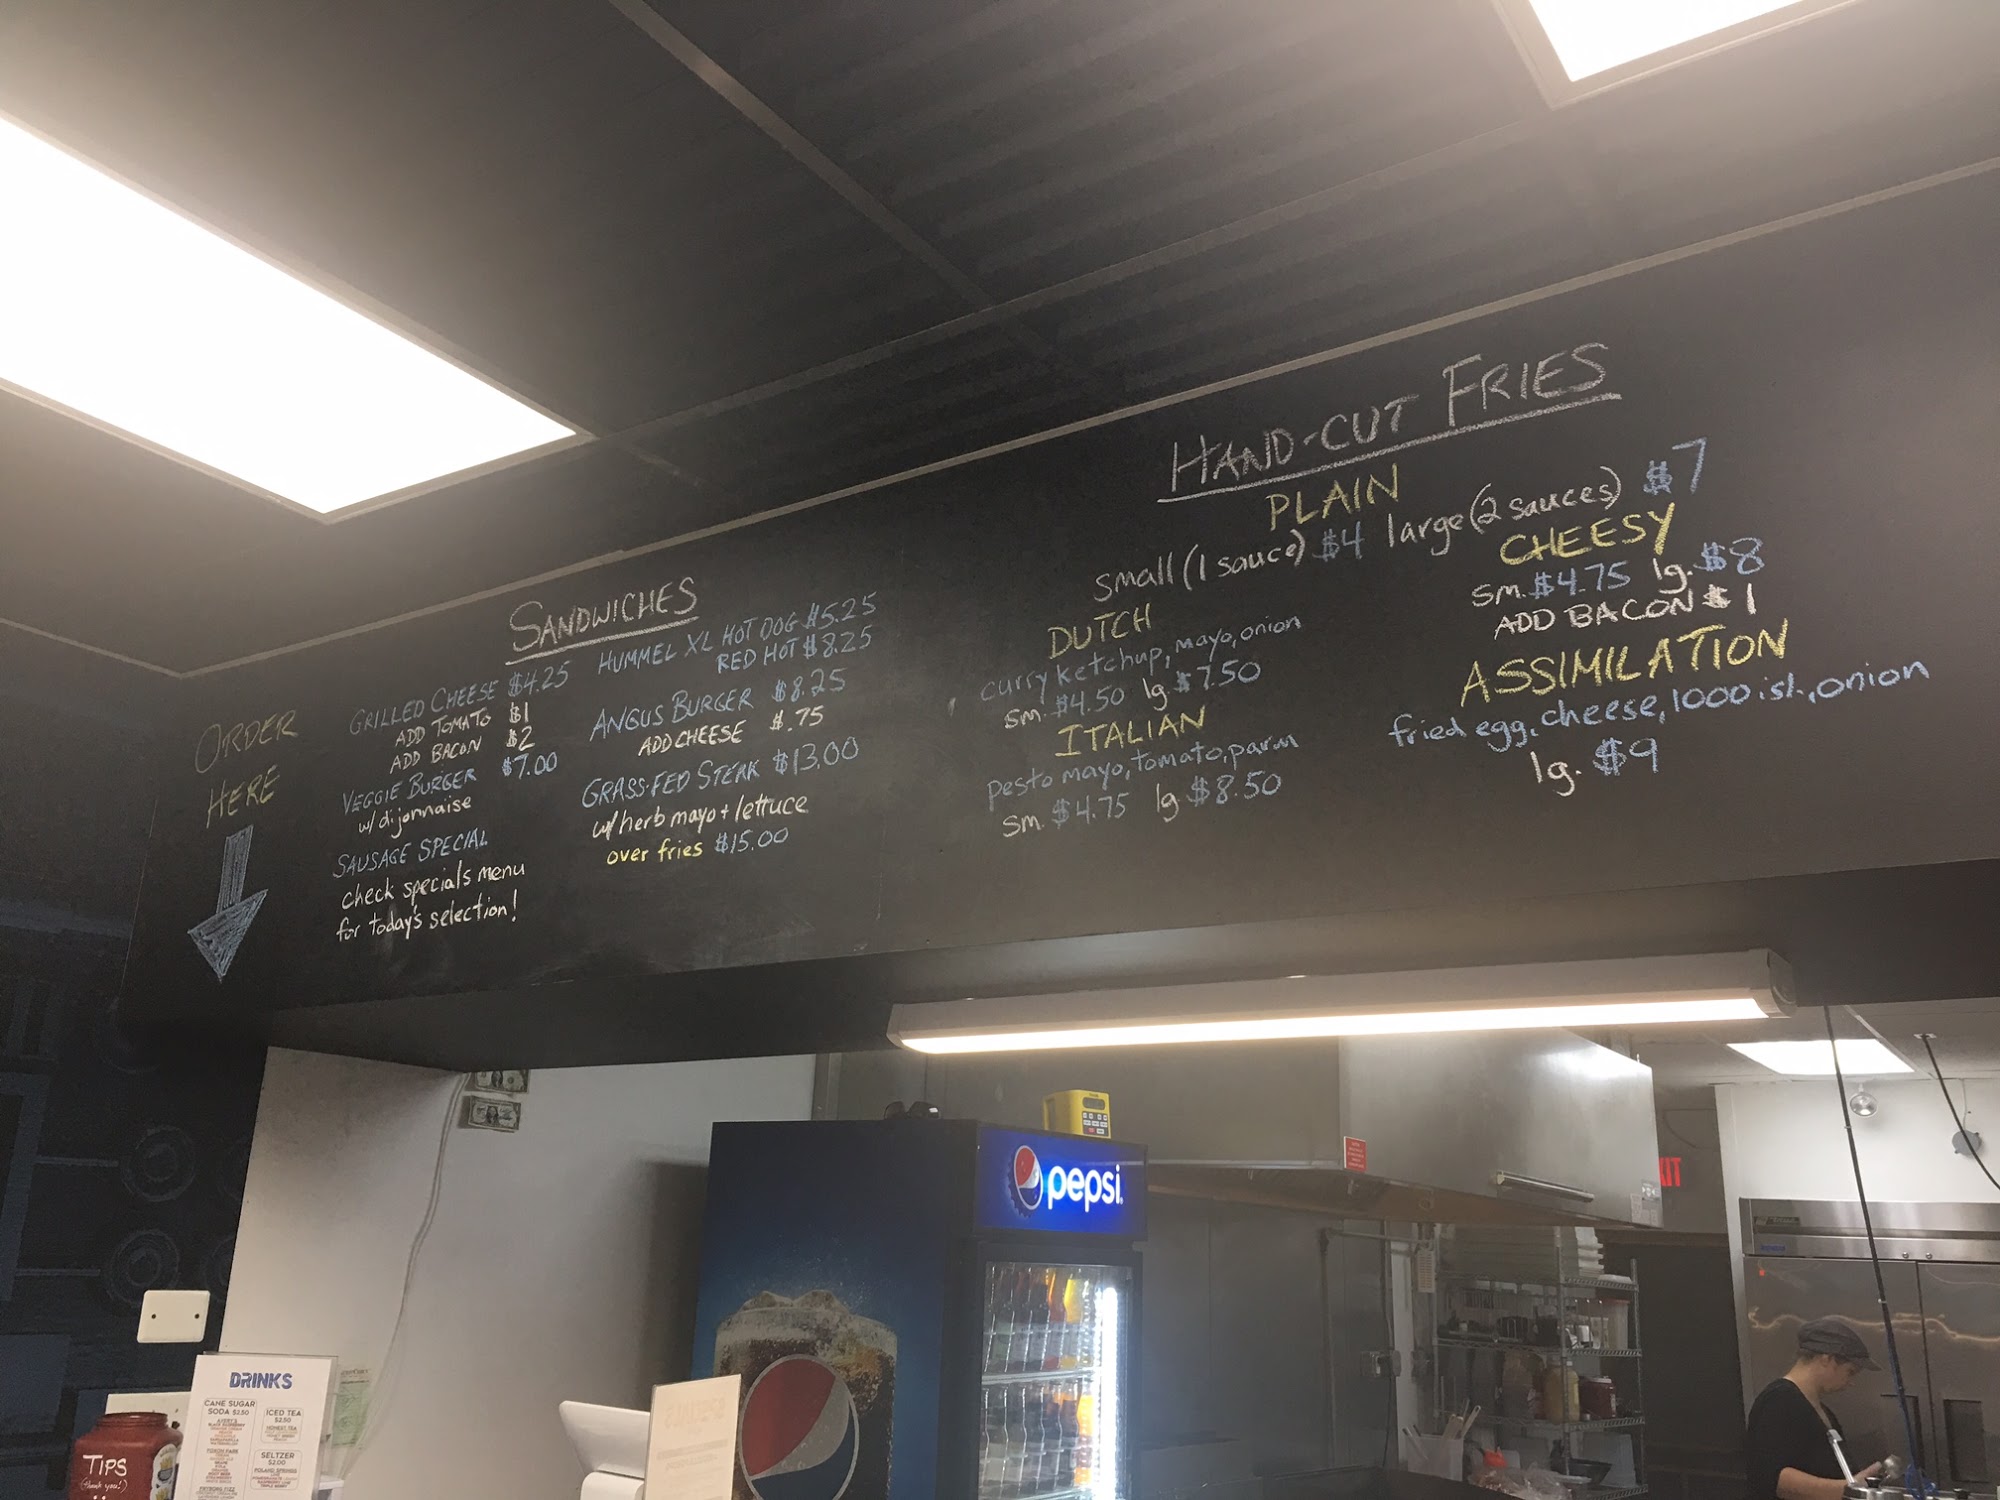 ORDER
HERE
SANDWICHES
GRILLED CHEESE $4.25
ADD TOMATO $1
ADD BACON $2
VEGGIE BURGER $7.00
w/ dijonnaise
SAUSAGE SPECIAL
check specials menu
for today's selection!
HUMMEL XL HOT DOG $5.25
RED HOT $8.25
ANGUS BURGER $8.25
ADD CHEESE $.75
GRASS-FED STEAK $13.00
w/ herb mayo + lettuce
over fries $15.00
HAND-CUT FRIES
PLAIN
small (1 sauce) $4 large (2 sauces) $7
DUTCH
curry ketchup, mayo, onion
sm. $4.50 lg. $7.50
ITALIAN
pesto mayo, tomato, parm
sm. $4.75 lg $8.50
CHEESY
sm. $4.75 lg. $8
ADD BACON $1
ASSIMILATION
fried egg, cheese, 1000 isl., onion
lg. $9
pepsi
XIT
DRINKS
CANE SUGAR
SODA $2.50
ICED TEA
$2.50
SELTZER
$2.00
TIPS
(thank you!)